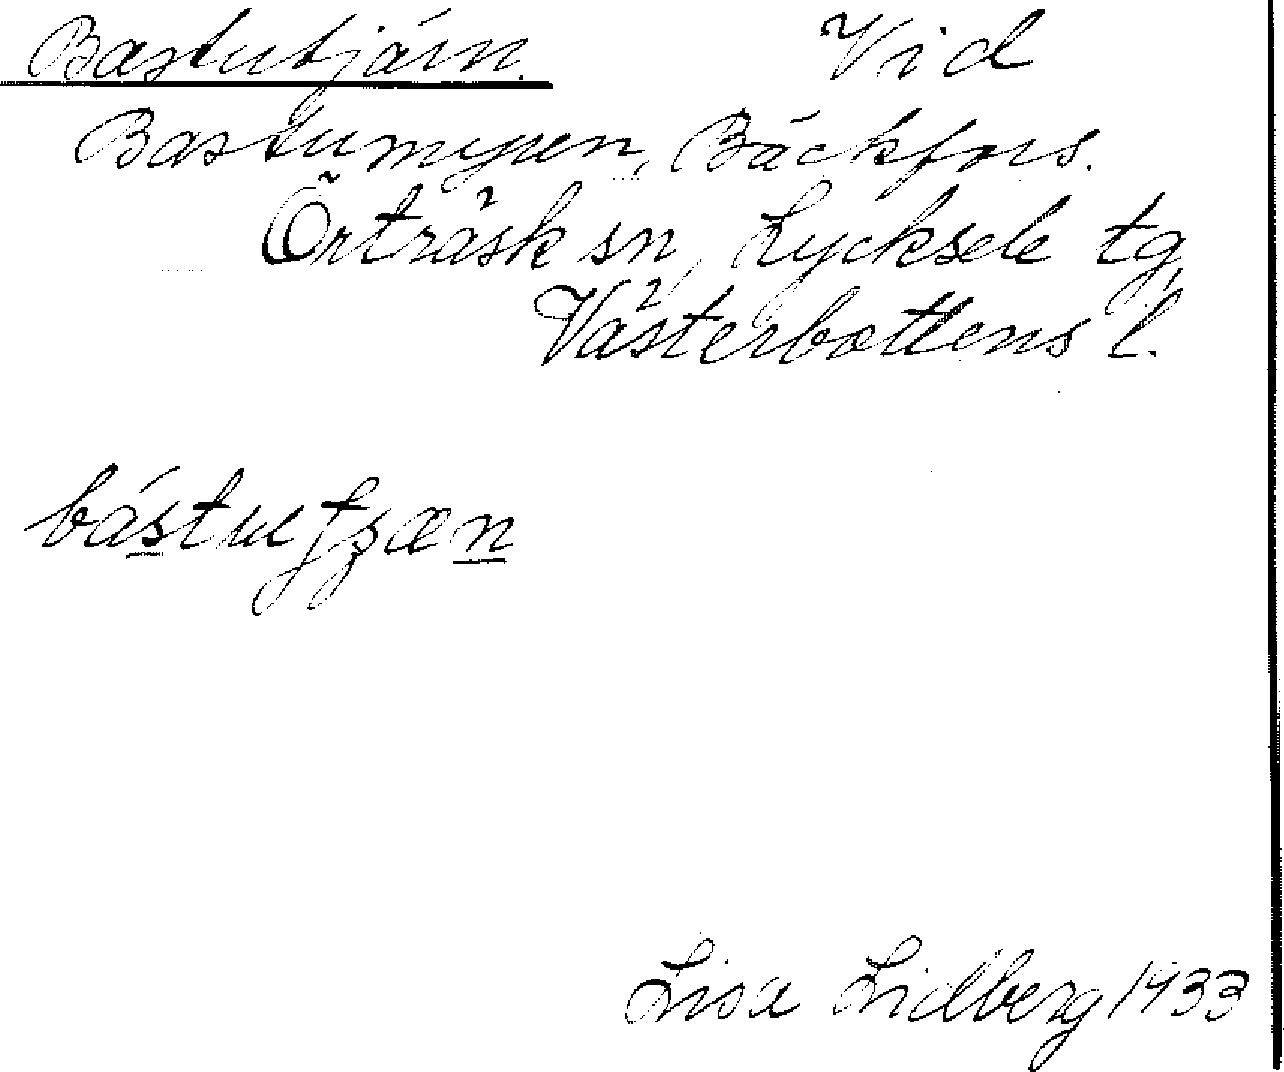 Bastutjärn. Vid
Bastumyren, Bäckfors.
Örträsk sn, Lycksele tg,
Västerbottens l.
Lisa Lidberg 1933